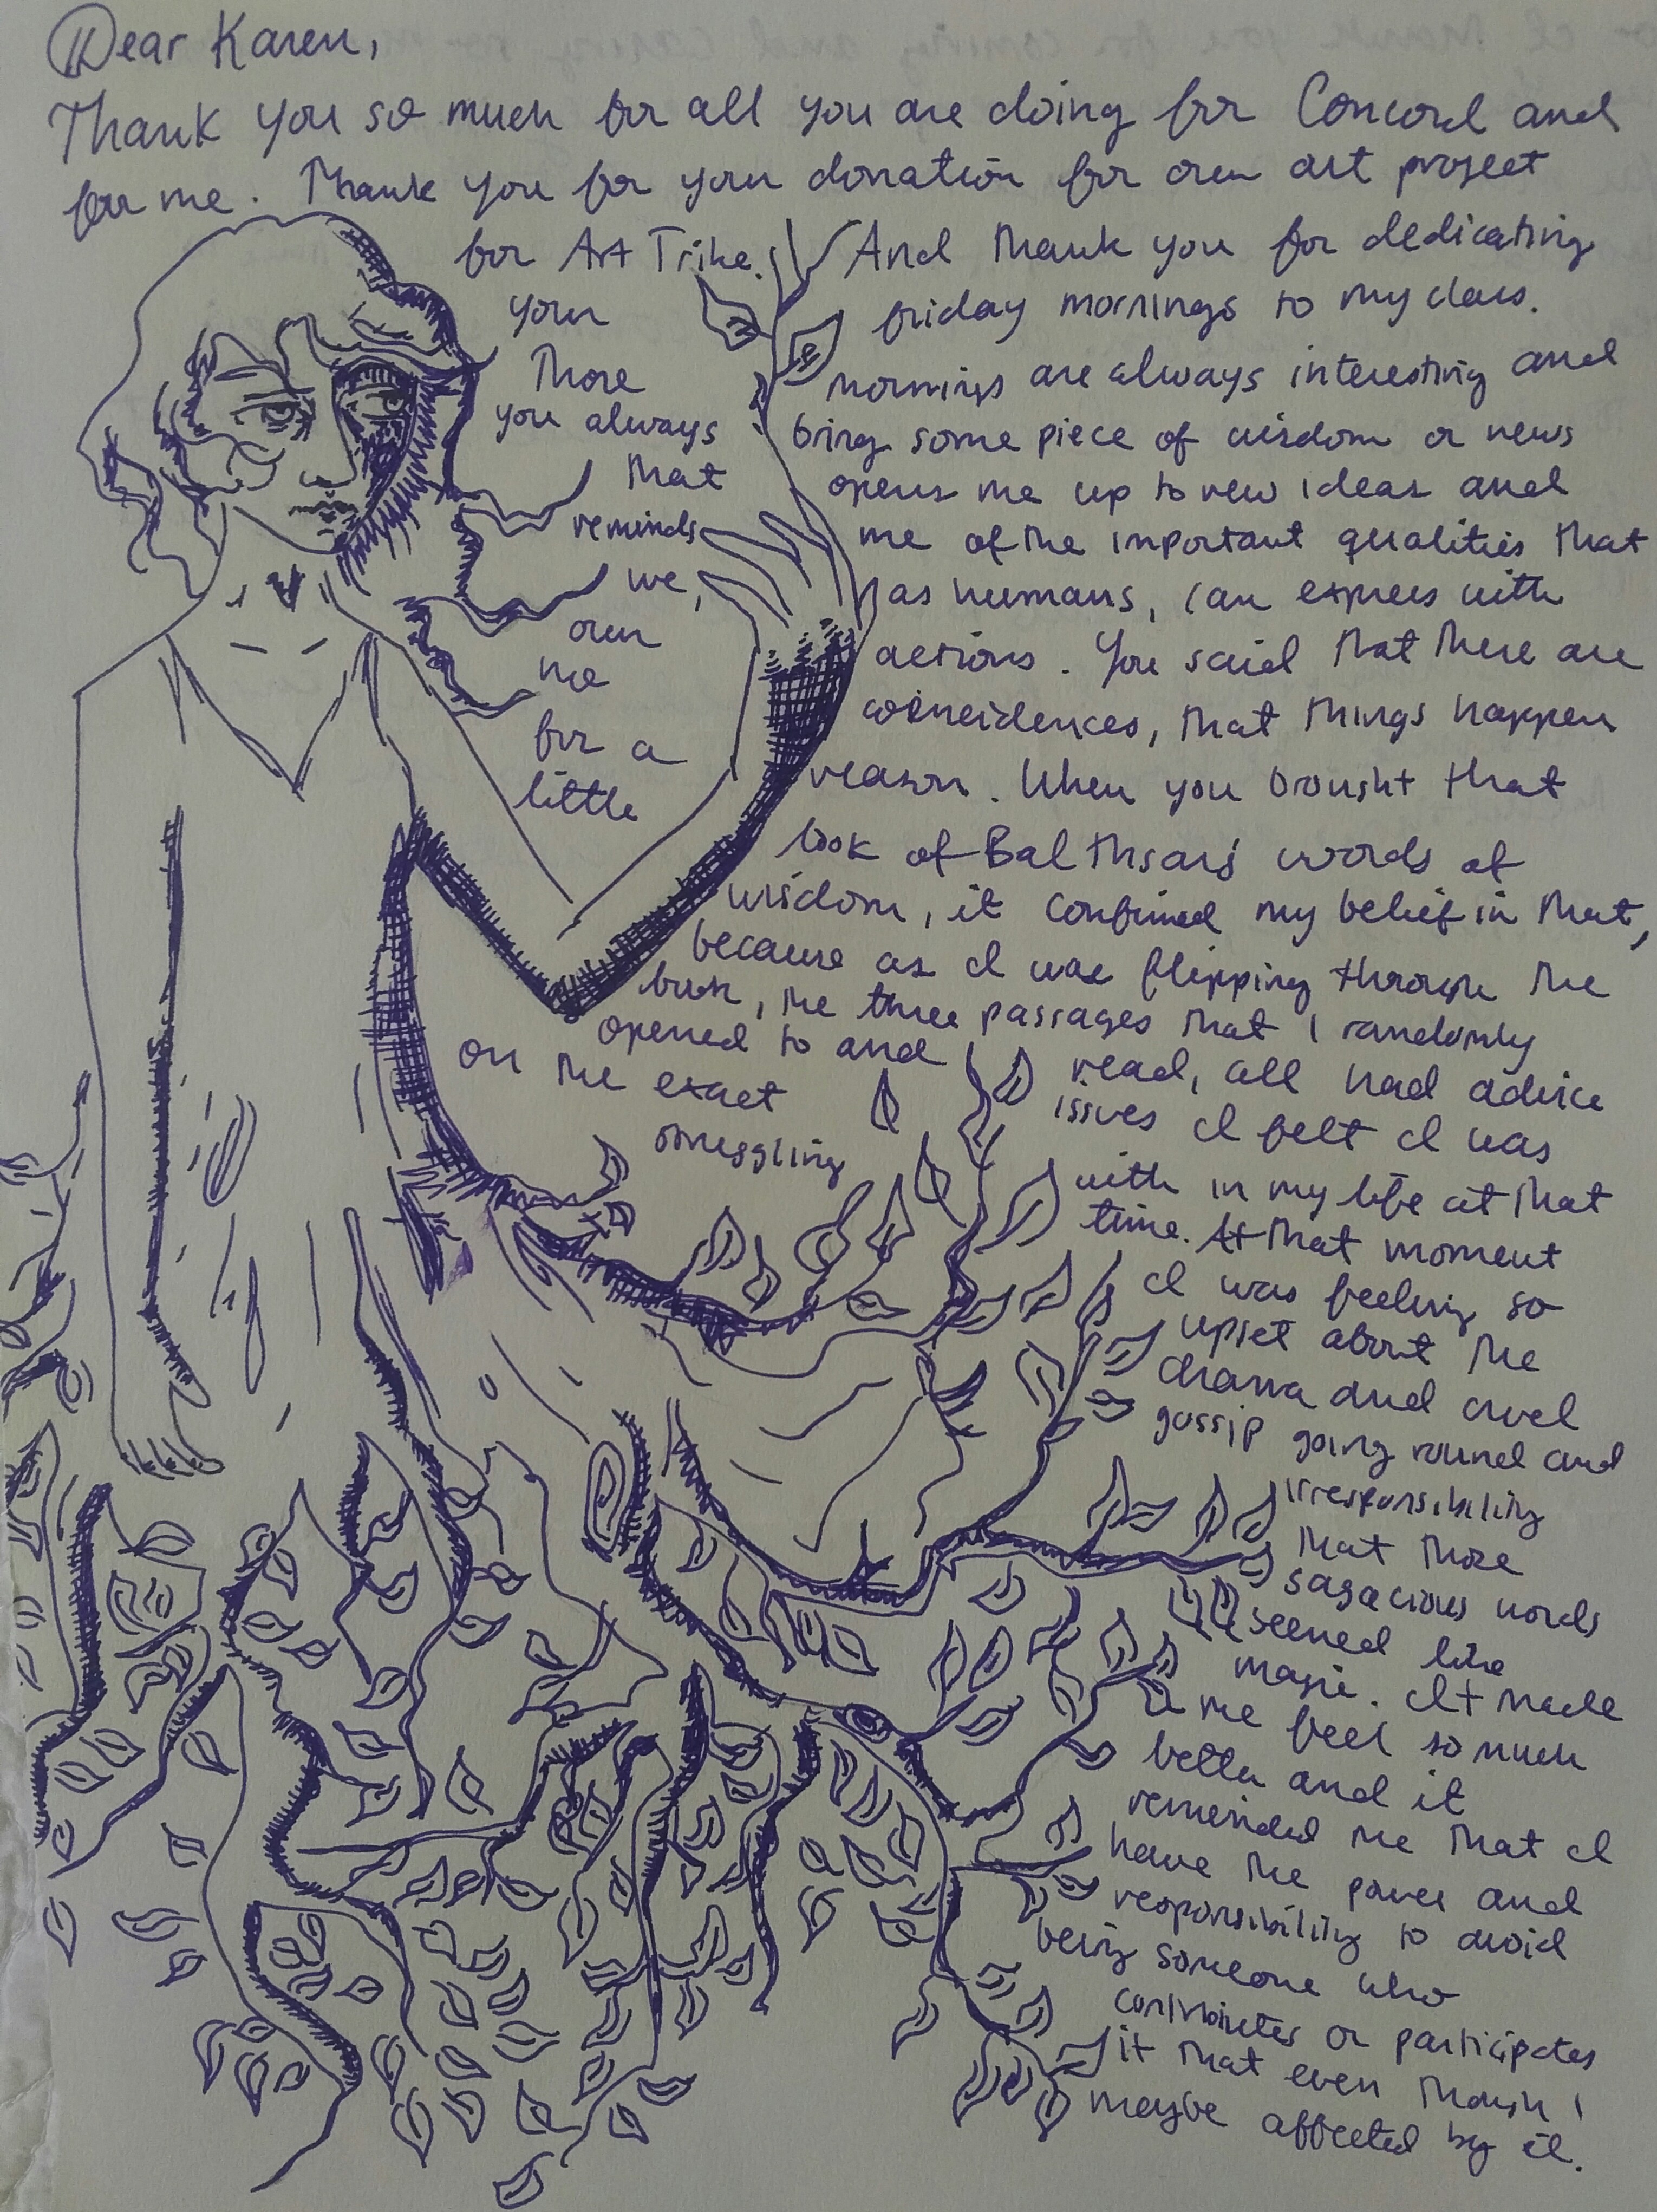 Dear Karen,
Thank you so much for all you are doing for Concord and
for me. Thank you for your donation for our art project
for Art Trike. And thank you for dedicating
your friday mornings to my class.
Those mornings are always interesting and
you always bring some piece of wisdom or news
that opens me up to new ideas and
reminds me of the important qualities that
we, as humans, can express with
our actions. You said that there are
no coincidences, that things happen
for a reason. When you brought that
little book of Balthsar's words of
wisdom, it confirmed my belief in that,
because as I was flipping through the
book, the three passages that I randomly
opened to and read, all had advice
on the exact issues I felt I was
struggling with in my life at that
time. At that moment
I was feeling so
upset about the
drama and cruel
gossip going round and
irresponsibility
that those
sagacious words
seemed like
magic. It made
me feel so much
better and it
reminded me that I
have the power and
responsibility to avoid
being someone who
contributes or participates
it that even though I
maybe affected by it.